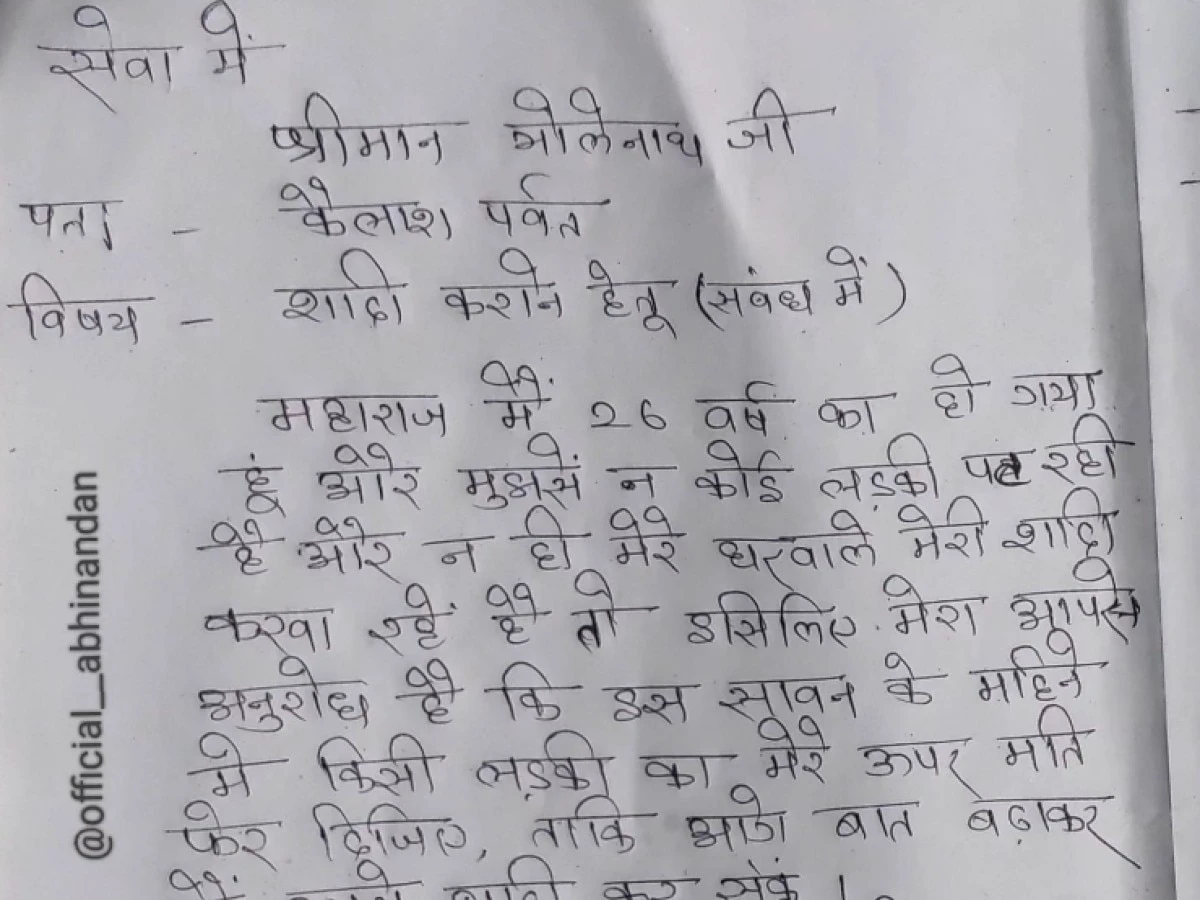 सेवा में
श्रीमान भोलेनाथ जी
पता - कैलाश पर्वत
विषय - शादी कराने हेतू (संबंध में)
महाराज मैं 26 वर्ष का हो गया
हूं और मुझसें न कोई लड़की पट रही
है और न ही मेरे घरवाले मेरी शादी
करवा रहें है तो इसिलिए मेरा आपसे
अनुरोध है कि इस सावन के महिने
मे किसी लड़की का मेरे ऊपर मति
फेर दिजिए, ताकि आगे बात बढ़ाकर
कर सकें।
@official_abhinandan